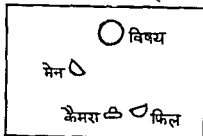 विषय
मेन
कैमरा
फिल